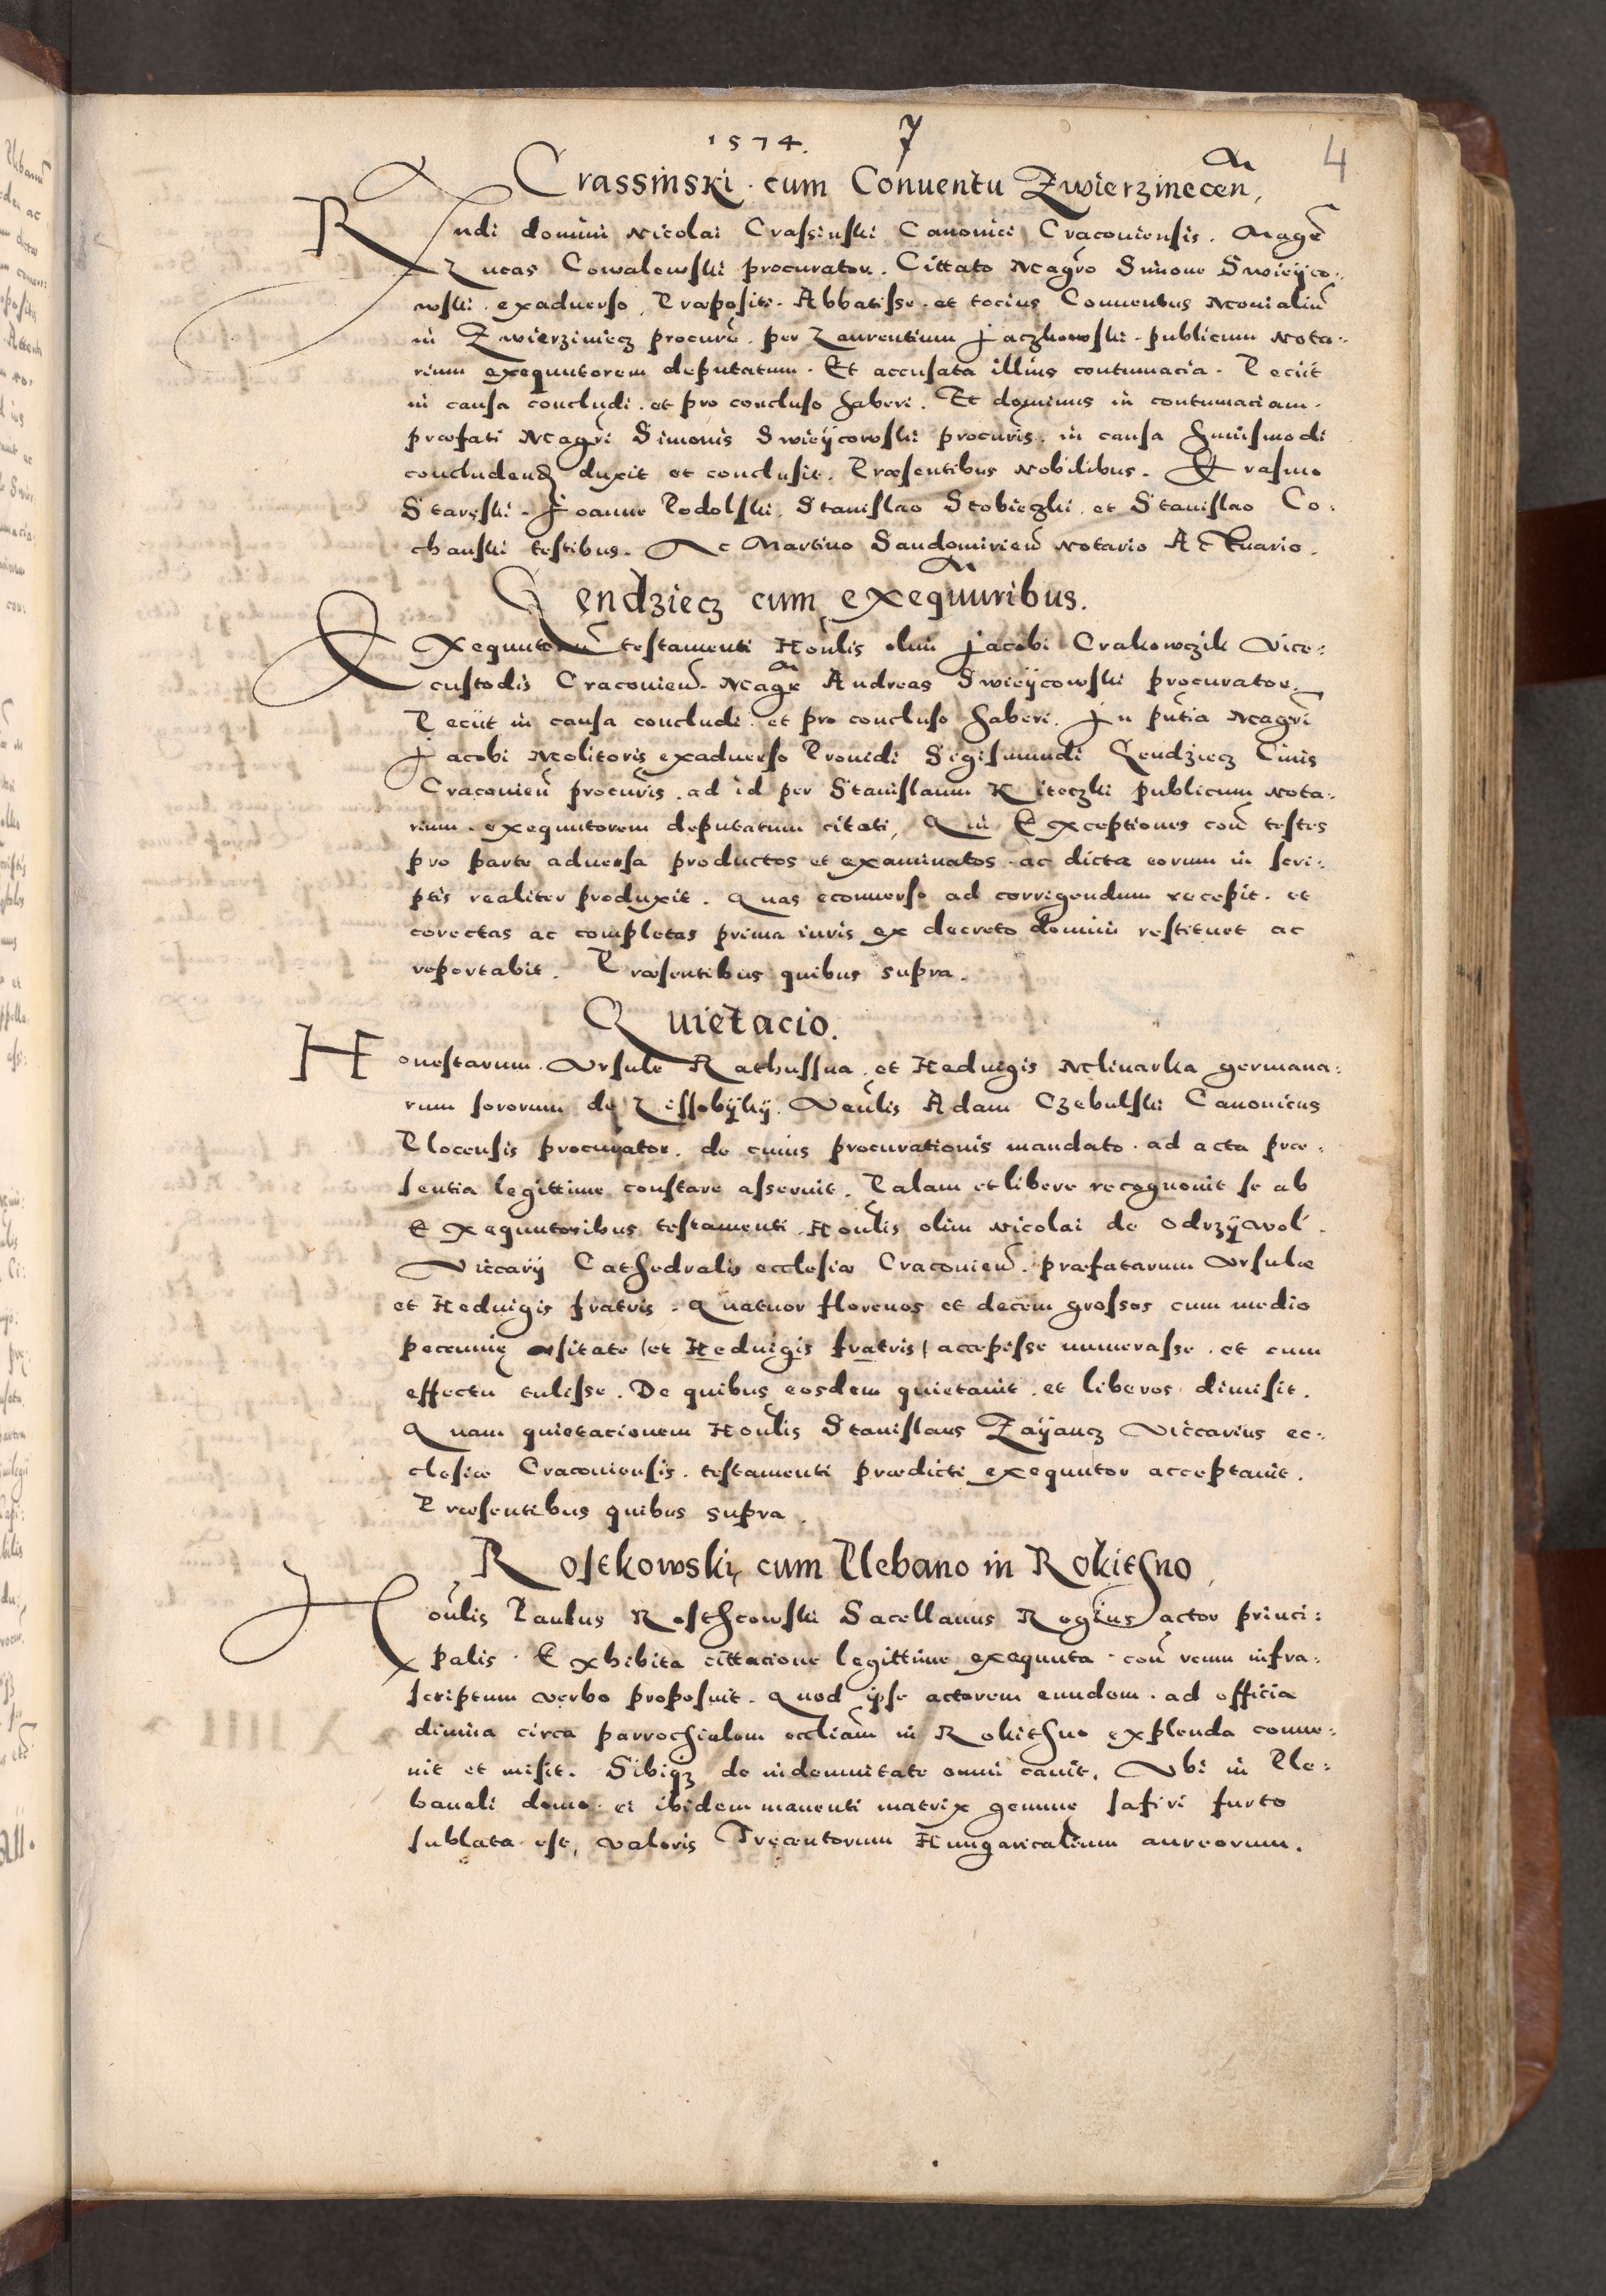 1574. 7 4
Crassinski. cum Conuentu Zwierzinecen̄,
Rndi domini Nicolai Crassinski Canonici Cracouiensis. Magr̄
Lucas Cowalowski procurator. Cittato Magr̄o Simone Swieÿco:
wski. exaduerso, Præpositi. Abbatisse. et tocius Conuentus Monialiū
in Zwierziniecz procurē. per Laurentium Jaczkowski. publicum Nota:
rium exequutorem deputatum. Et accusata illius contumacia. Peciit
in causa concludi. et pro concluso haberi. Et dominus in contumaciam.
præfati Magr̄i Simonis Swieÿcowski procur̄is. in causa huiusmodi
concludend̄ duxit et conclusit. Præsentibus Nobilibus. Erasmo
Starsski. Joanne Podolski. Stanislao Stobieczki. et Stanislao Co:
chanski testibus. Ac Martino Sandomirien̄ Notario Actuario.
Lendziecz cum exequuribus.
Exequutorū testamenti Hon̄lis olim Jacobi Crakowczik Vice:
custodis Cracouien̄. Magr̄ Andreas Swieÿcowski procurator.
Peciit in causa concludi. et pro concluso haberi. In pn̄tia Magr̄i
Jacobi Molitoris exaduerso Prouidi Sigismundi Lendziecz Ciuis
Cracouien̄ procur̄is. ad id per Stanislaum Kiteczki publicum Nota:
rium. exequutorem deputatum citati, Qui Exceptiones con̄ testes
pro parte aduersa productos et examinatos. ac dicta eorum in scri:
ptis realiter produxit. Quas econuerso ad corrigendum recepit. et
corectas ac completas prima iuris ex decreto domini restituet ac
reportabit. Præsentibus quibus supra.
Quietacio.
Honestarum. Vrsule Rathussna. et Heduigis Mlinarka germana:
rum sororum de Lissobÿkÿ. Ven̄lis Adam Czebulski Canonicus
Plocensis procurator. de cuius procurationis mandato. ad acta præ:
sentia legittime constare asseruit. Palam et libere recognouit se ab
Exequutoribus testamenti. Hon̄lis olim Nicolai de Odrzÿwol.
Viccarÿ Cathedralis ecclesiæ Cracouien̄. præfatarum Vrsulæ
et Heduigis fratris. Quatuor florenos et decem grossos cum medio
pecunię vsitate (et Heduigis fratris) accepisse numerasse. et cum
effectu tulisse. De quibus eosdem quietauit. et liberos dimisit.
Quam quietacionem Hon̄lis Stanislaus Zaÿancz Viccarius ec:
clesiæ Cracouiensis. testamenti prædicti exequutor acceptauit.
Præsentibus quibus supra.
Rostkowski, cum Plebano in Rokithno,
Hon̄lis Paulus Rosthcowski Sacellanus Regius actor princi:
palis. Exhibita cittacione legittime exequuta. con̄ reum infra:
scriptum verbo proposuit. Quod ipse actorem eundem. ad officia
diuina circa parrochialem eccliam̄ in Rokithno explenda conue:
nit et misit. Sibiqȝ de indemnitate omni cauit. Vbi in Ple:
banali domo. ei ibidem manenti matrix gemme safiri furto
sublata est, valoris Trecentorum Hungaricalium aureorum.